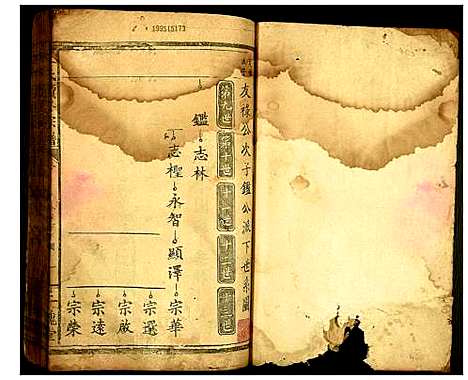 199515173
友祿公次子鑑公派下世系圖
第九世
第十世
十一世
十二世
十三世
鑑 志林
志樫 永智 顯澤 宗華
宗選
宗啟
宗遠
宗榮